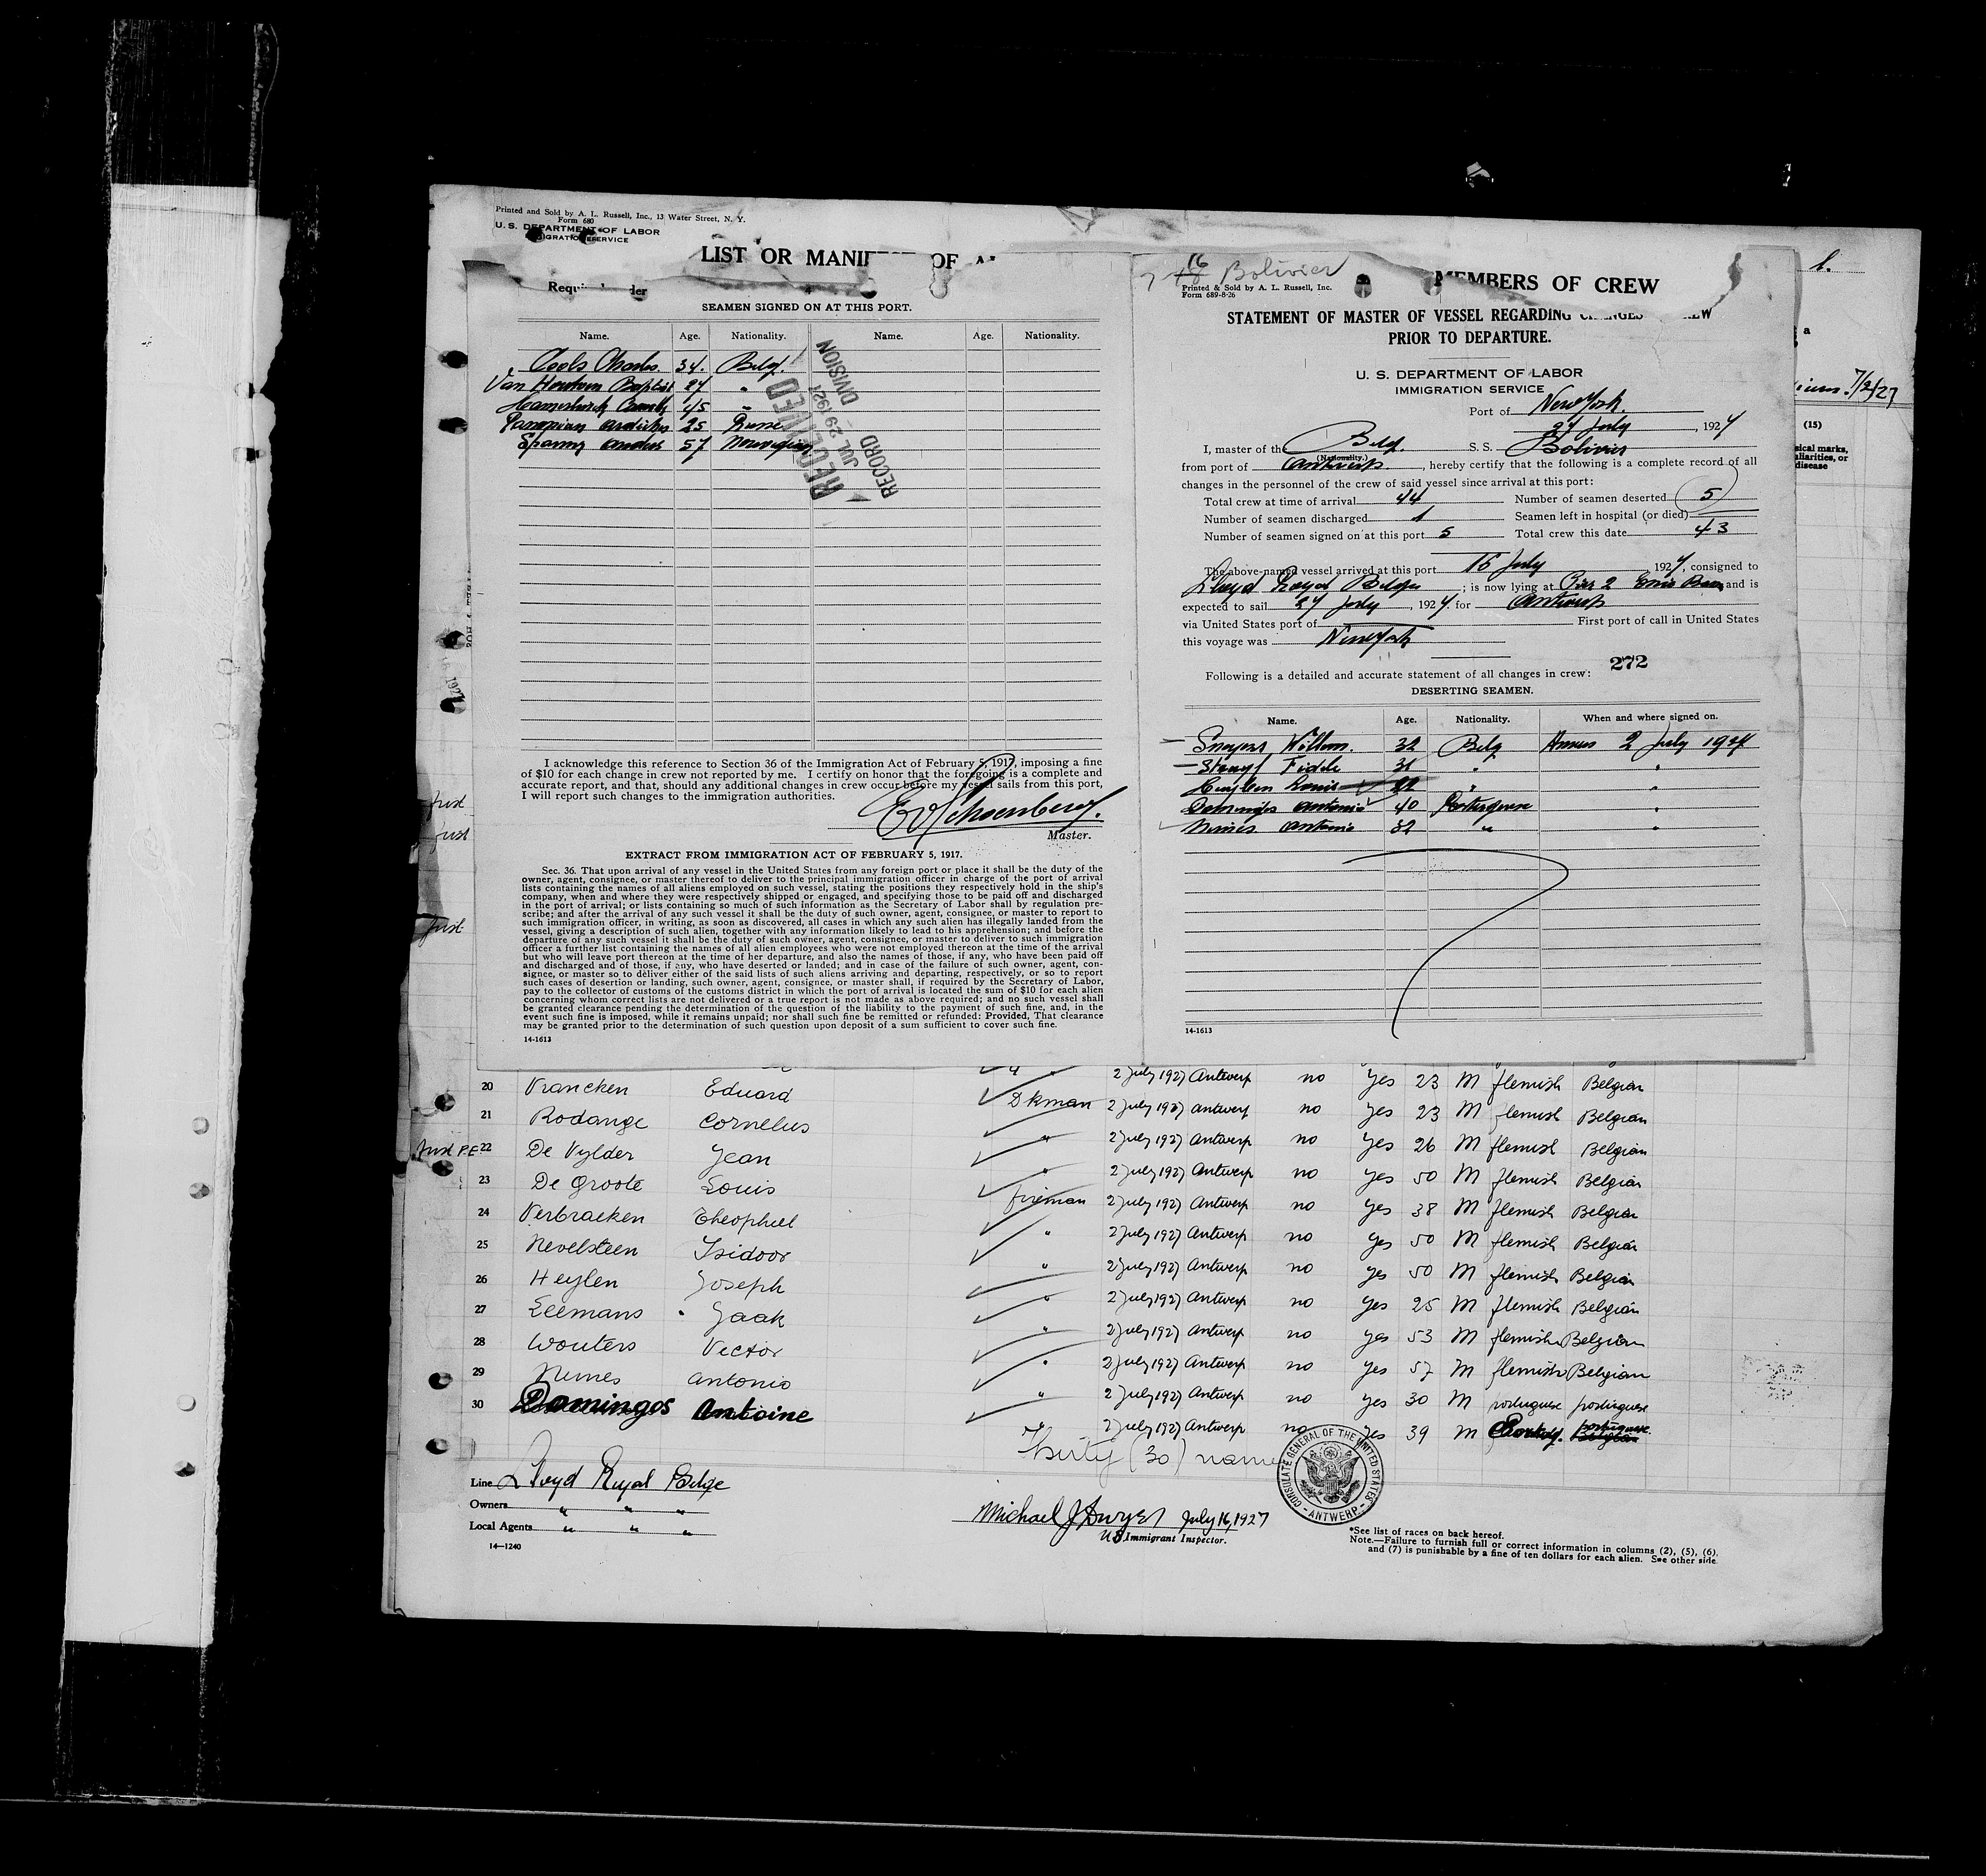 Printed and Sold by A. L. Russell, Inc., 13 Water Street, N. Y.
Form 680
U. S. DEPARTMENT OF LABOR
IMMIGRATION SERVICE
LIST OR MANIFEST OF
MEMBERS OF CREW
SEAMEN SIGNED ON AT THIS PORT.
Name. Age. Nationality. Name. Age. Nationality.
Cools Charles. 34. Belg.
Van Baptist 27 "
45 "
25 Russe
57 Norwegian
RECEIVED
JUL 29 1927
RECORD DIVISION
I acknowledge this reference to Section 36 of the Immigration Act of February 5, 1917, imposing a fine
of $10 for each change in crew not reported by me. I certify on honor that the foregoing is a complete and
accurate report, and that, should any additional changes in crew occur before my vessel sails from this port,
I will report such changes to the immigration authorities.
Master.
EXTRACT FROM IMMIGRATION ACT OF FEBRUARY 5, 1917.
Sec. 36. That upon arrival of any vessel in the United States from any foreign port or place it shall be the duty of the
owner, agent, consignee, or master thereof to deliver to the principal immigration officer in charge of the port of arrival
lists containing the names of all aliens employed on such vessel, stating the positions they respectively hold in the ship's
company, when and where they were respectively shipped or engaged, and specifying those to be paid off and discharged
in the port of arrival; or lists containing so much of such information as the Secretary of Labor shall by regulation pre-
scribe; and after the arrival of any such vessel it shall be the duty of such owner, agent, consignee, or master to report to
such immigration officer, in writing, as soon as discovered, all cases in which any such alien has illegally landed from the
vessel, giving a description of such alien, together with any information likely to lead to his apprehension; and before the
departure of any such vessel it shall be the duty of such owner, agent, consignee, or master to deliver to such immigration
officer a further list containing the names of all alien employees who were not employed thereon at the time of the arrival
but who will leave port thereon at the time of her departure, and also the names of those, if any, who have been paid off
and discharged and of those, if any, who have deserted or landed; and in case of the failure of such owner, agent, con-
signee, or master so to deliver either of the said lists of such aliens arriving and departing, respectively, or so to report
such cases of desertion or landing, such owner, agent, consignee, or master shall, if required by the Secretary of Labor,
pay to the collector of customs of the customs district in which the port of arrival is located the sum of $10 for each alien
concerning whom correct lists are not delivered or a true report is not made as above required; and no such vessel shall
be granted clearance pending the determination of the question of the liability to the payment of such fine, and, in the
event such fine is imposed, while it remains unpaid; nor shall such fine be remitted or refunded: Provided, That clearance
may be granted prior to the determination of such question upon deposit of a sum sufficient to cover such fine.
14-1613
16 Bolivier
Printed & Sold by A. L. Russell, Inc.
Form 689-8-26
STATEMENT OF MASTER OF VESSEL REGARDING CHANGES CREW
PRIOR TO DEPARTURE.
U. S. DEPARTMENT OF LABOR
IMMIGRATION SERVICE
Port of New York.
27 July, 1927
I, master of the Belg. S. S. Bolivier
(Nationality.)
from port of Antwerp, hereby certify that the following is a complete record of all
changes in the personnel of the crew of said vessel since arrival at this port:
Total crew at time of arrival 44 Number of seamen deserted 5
Number of seamen discharged 1 Seamen left in hospital (or died)
Number of seamen signed on at this port 5 Total crew this date 43
The above-named vessel arrived at this port 16 July, 1927, consigned to
Lloyd Royal Belge; is now lying at Pier 2 Erie Basin and is
expected to sail 27 July, 1927 for Antwerp
via United States port of First port of call in United States
this voyage was New York
272
Following is a detailed and accurate statement of all changes in crew:
DESERTING SEAMEN.
Name. Age. Nationality. When and where signed on.
Willem. 32 Belg 2 July 1927
31 " "
Louis 22 " "
Domingos Antonio 40 Portuguese "
Nunes Antonio 32 " "
14-1613
7/2/27
(15)
20 Vrancken Eduard " 2 July 1927 Antwerp no yes 23 M flemish Belgian
21 Rodange Cornelius Dkman 2 July 1927 Antwerp no yes 23 M flemish Belgian
22 De Vylder Jean " 2 July 1927 Antwerp no yes 26 M flemish Belgian
23 De Groote Louis " 2 July 1927 Antwerp no yes 50 M flemish Belgian
24 Verbraeken Theophiel fireman 2 July 1927 Antwerp no yes 38 M flemish Belgian
25 Nevelsteen Isidoor " 2 July 1927 Antwerp no yes 50 M flemish Belgian
26 Heylen Joseph " 2 July 1927 Antwerp no yes 50 M flemish Belgian
27 Leemans Jaak " 2 July 1927 Antwerp no yes 25 M flemish Belgian
28 Wouters Victor " 2 July 1927 Antwerp no yes 53 M flemish Belgian
29 Nunes Antonio " 2 July 1927 Antwerp no yes 57 M flemish Belgian
30 Domingos Antoine " 2 July 1927 Antwerp no yes 30 M portuguese portuguese
2 July 1927 Antwerp no yes 39 M portuguese
Thirty (30) names
CONSULATE GENERAL OF THE UNITED STATES - ANTWERP -
Line Lloyd Royal Belge
Owners " " "
Local Agents " " "
14—1240
Michael J Dwyer July 16, 1927
US Immigrant Inspector.
*See list of races on back hereof.
Note.—Failure to furnish full or correct information in columns (2), (5), (6),
and (7) is punishable by a fine of ten dollars for each alien. See other side.